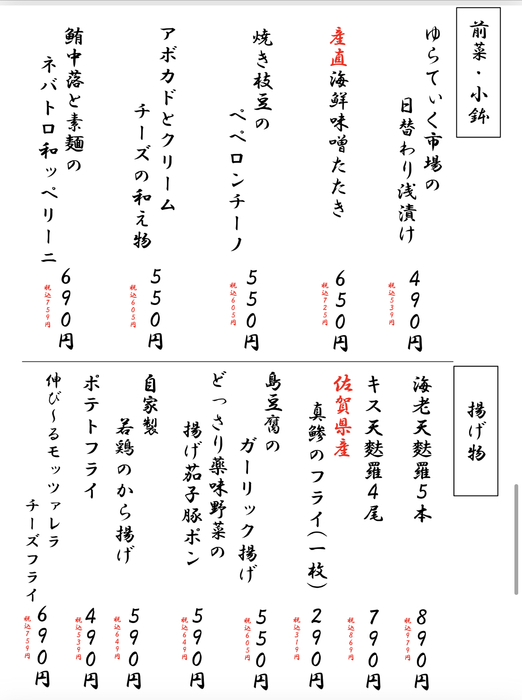 前菜・小鉢
ゆらてぃく市場の
日替わり浅漬け
490円
税込539円
産直海鮮味噌たたき
650円
税込725円
焼き枝豆の
ペペロンチーノ
550円
税込605円
アボカドとクリーム
チーズの和え物
550円
税込605円
鮪中落と素麺の
ネバトロ和ッペリーニ
690円
税込759円
揚げ物
海老天麩羅5本
890円
税込979円
キス天麩羅4尾
790円
税込869円
佐賀県産
真鯵のフライ(一枚)
290円
税込319円
島豆腐の
ガーリック揚げ
550円
税込605円
どっさり薬味野菜の
揚げ茄子豚ポン
590円
税込649円
自家製
若鶏のから揚げ
590円
税込649円
ポテトフライ
490円
税込539円
伸び〜るモッツァレラ
チーズフライ
690円
税込759円